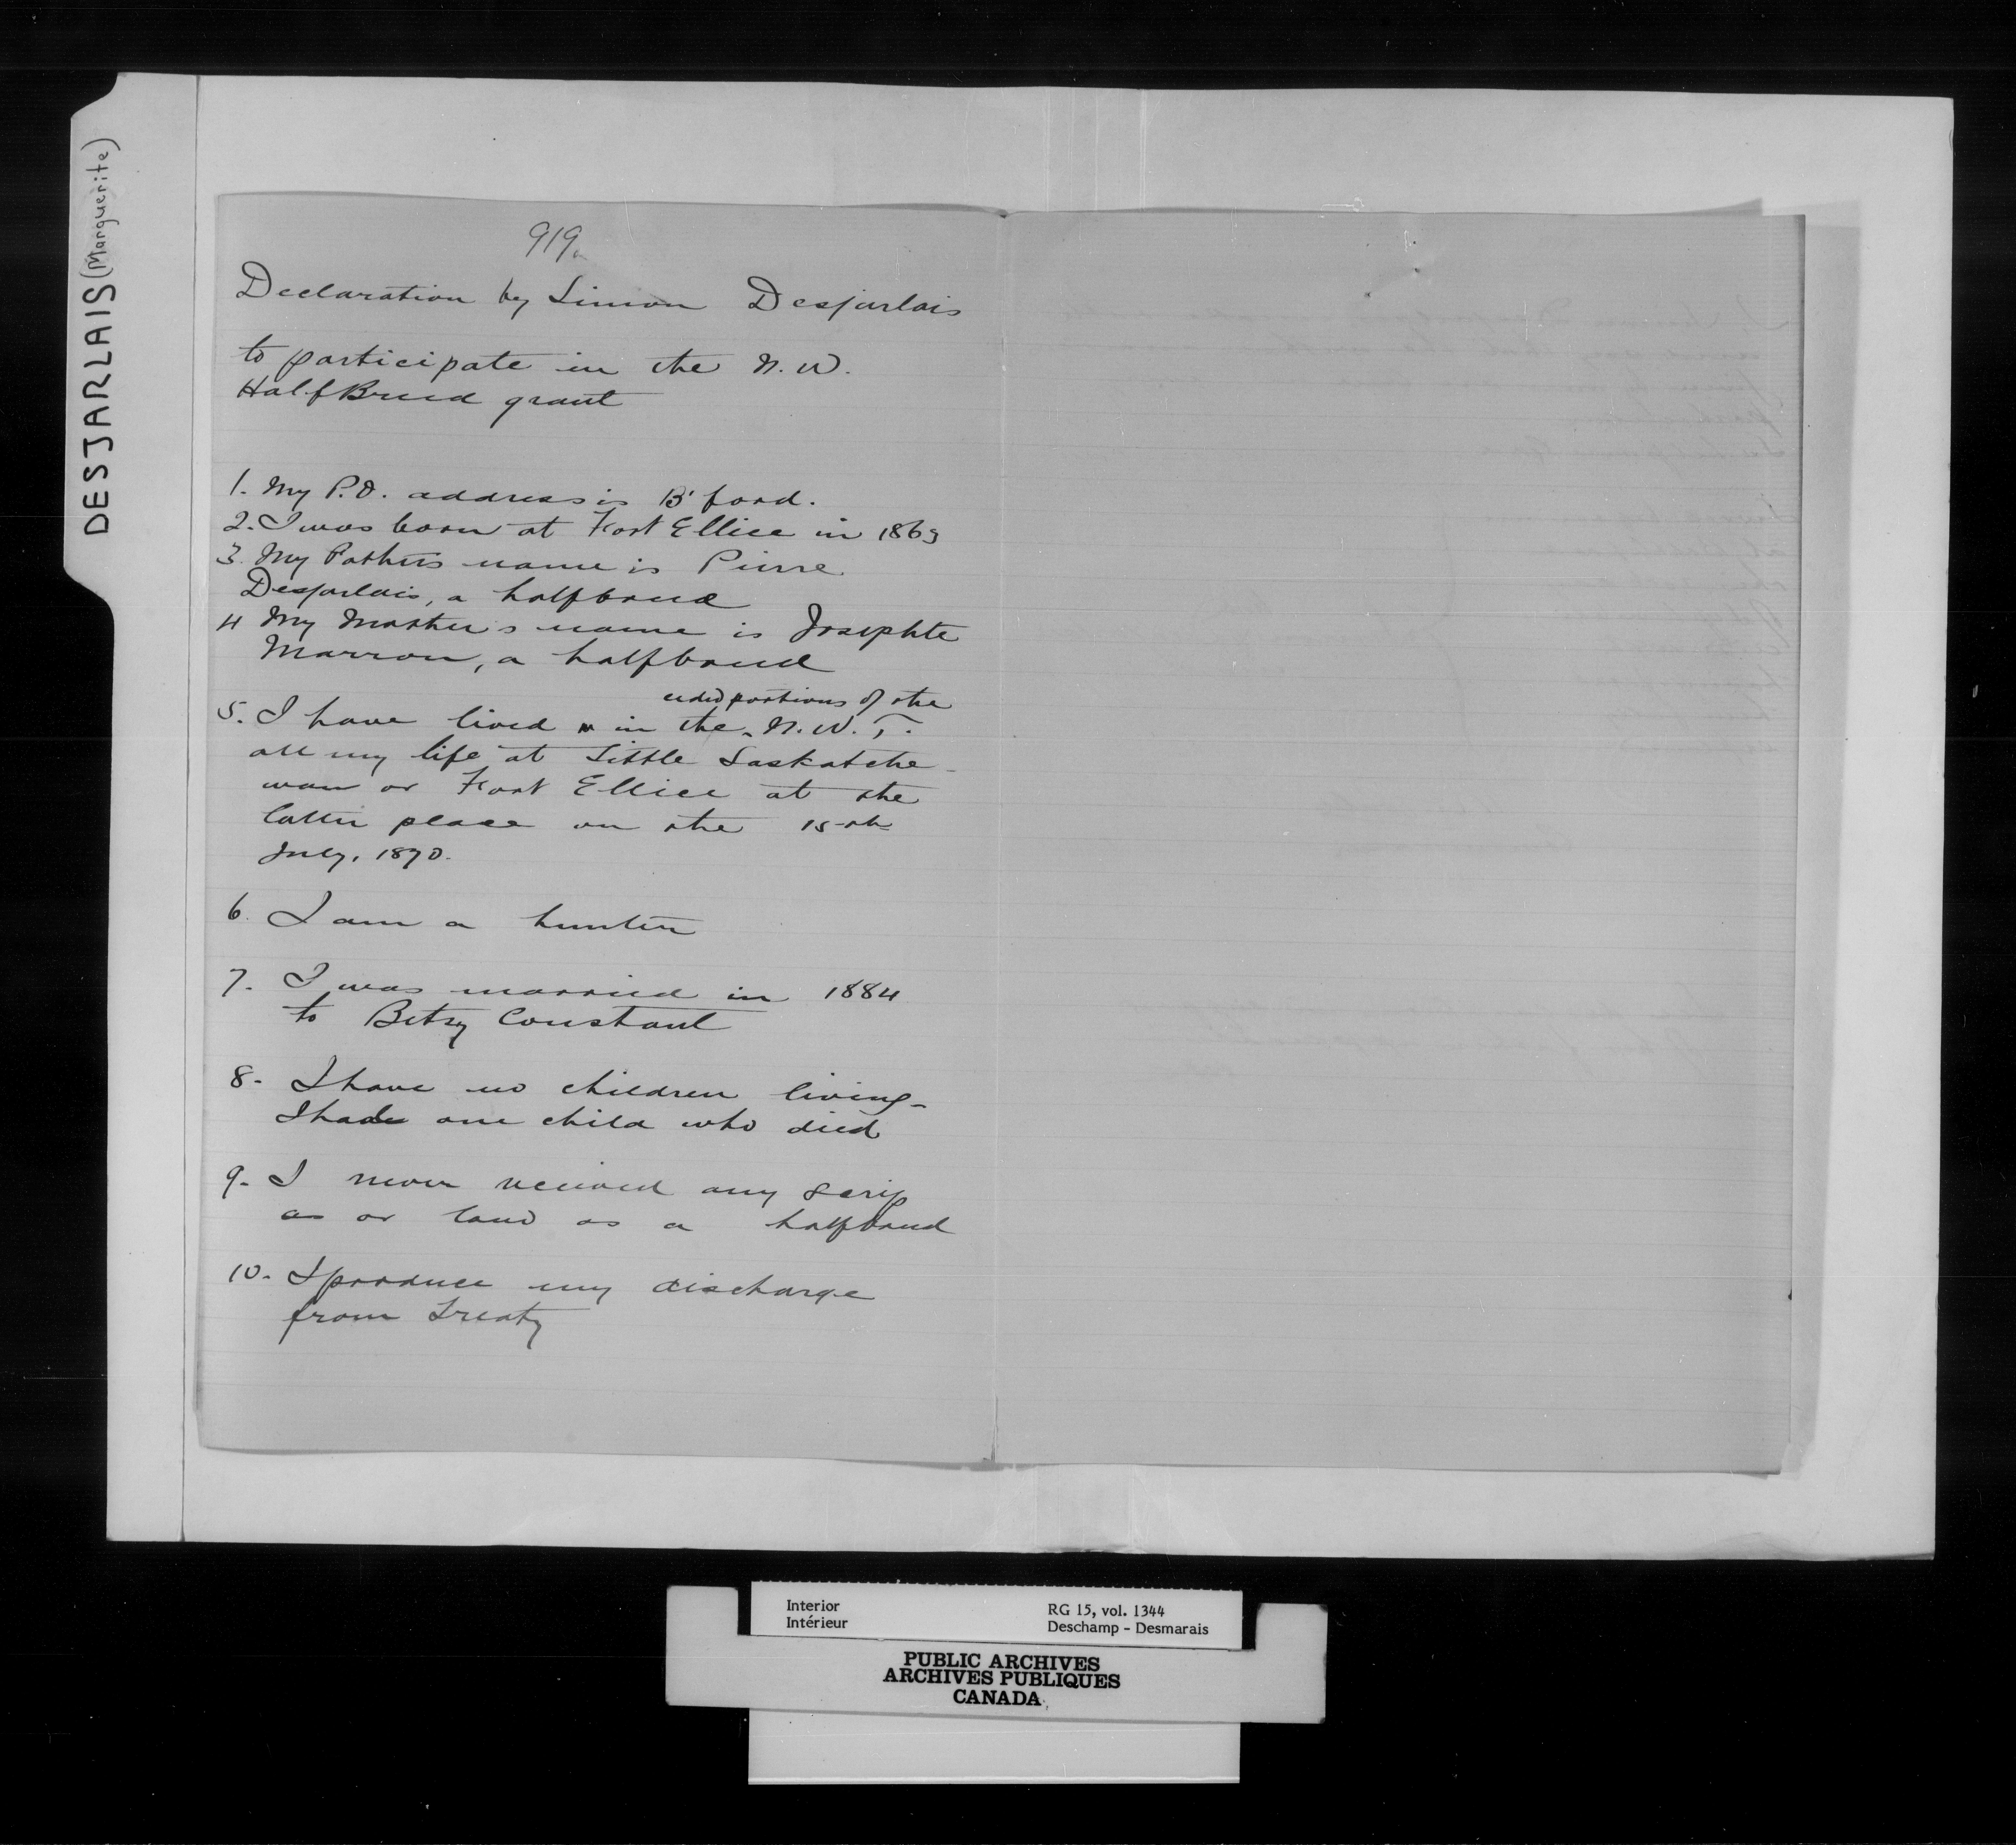 DESJARLAIS (Marguerite)
919
Declaration by Simon Desjarlais
to participate in the N.W.
Half Breed grant
1. My P.O. address is B'ford.
2. I was born at Fort Ellice in 1863
3. My Father's name is Pierre
Desjarlais, a halfbreed
4 My Mother's name is Josephte
Marron, a halfbreed
ceded portions of the
5. I have lived in the N.W.T.
all my life at Little Saskatche-
wan or Fort Ellice at the
latter place on the 15th
July, 1870.
6. I am a hunter
7. I was married in 1884
to Betsy Constant
8. I have no children living-
I had one child who died
9. I never received any scrip
as or land as a halfbreed
10. I produce my discharge
from Treaty
Interior
Intérieur
RG 15, vol. 1344
Deschamp - Desmarais
PUBLIC ARCHIVES
ARCHIVES PUBLIQUES
CANADA